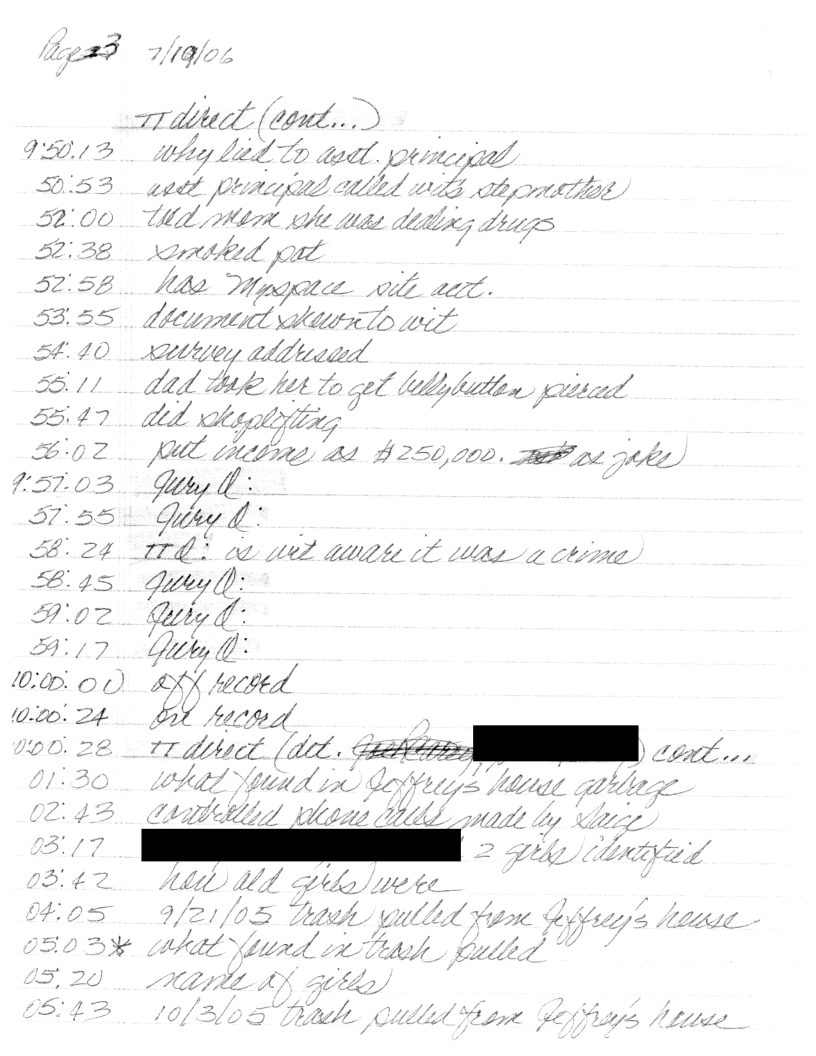 Page 3 7/19/06
π direct (cont...)
9:50:13 why lied to asst. principal
50:53 asst principal called wit's stepmother
52:00 told mom she was dealing drugs
52:38 smoked pot
52:58 has Myspace site acct.
53:55 document shown to wit
54:40 survey addressed
55:11 dad took her to get bellybutton pierced
55:47 did shoplifting
56:02 put income as $250,000. as joke
9:57:03 Jury Q:
57:55 Jury Q:
58:24 π Q: is wit aware it was a crime
58:45 Jury Q:
59:02 Jury Q:
59:17 Jury Q:
10:00:00 off record
10:00:24 on record
10:00:28 π direct (det. ) cont...
01:30 what found in Jeffrey's house garbage
02:43 controlled phone calls made by Saige
03:17 2 girls identified
03:42 how old girls were
04:05 9/21/05 trash pulled from Jeffrey's house
05:03* what found in trash pulled
05:20 name of girls
05:43 10/3/05 trash pulled from Jeffrey's house